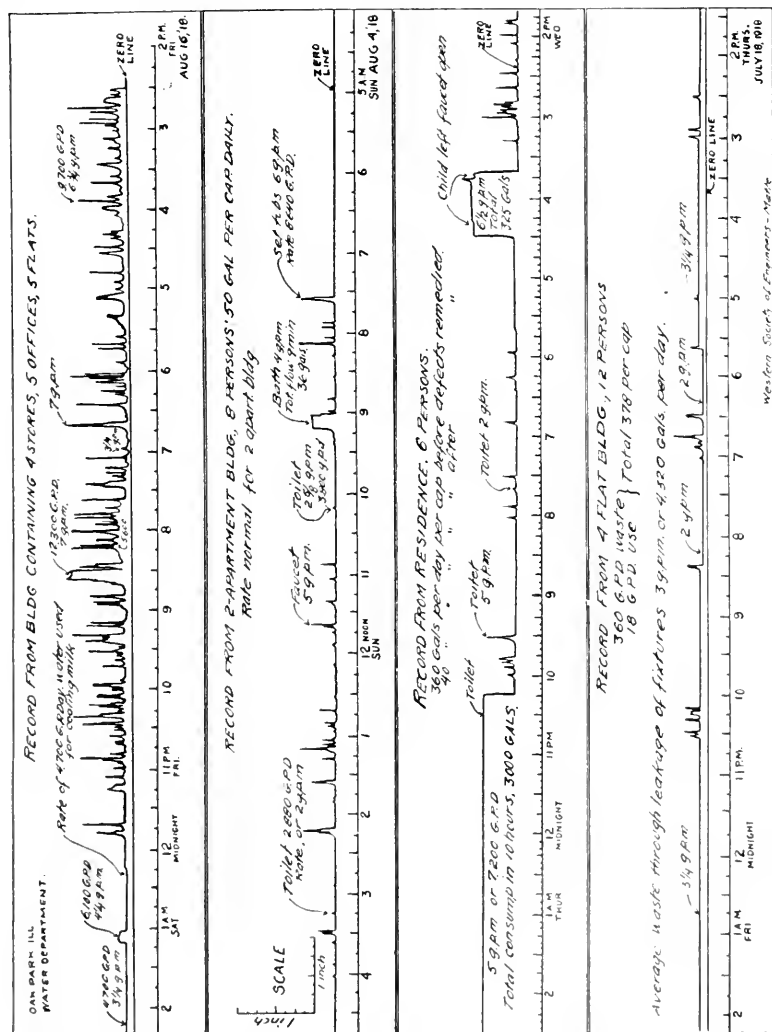 OAK PARK ILL
WATER DEPARTMENT.
RECORD FROM BLDG CONTAINING 4 STORES, 5 OFFICES, 5 FLATS.
4700 G.P.D
3 1/4 g.p.m
6100 G.P.D
4 1/4 g.p.m
Rate of 4700 G.P.Day, water used
for cooling milk
12300 G.P.D.
7 g.p.m
9700 G.P.D
6 3/4 g.p.m
ZERO
LINE
2 1AM 12 11PM 10 9 8 7 6 5 4 3 2 P.M.
SAT MIDNIGHT FRI. FRI
AUG 16, '18.
RECORD FROM 2-APARTMENT BLDG, 8 PERSONS' 50 GAL PER CAP. DAILY.
Rate normal for 2 apart. bldg
SCALE
1 inch
1 inch
Toilet 2880 G.P.D
Rate, or 2 g.p.m
Faucet
5 g.p.m.
Toilet
2 5/8 g.p.m
3800 g.p.d
Bath 4 g.p.m
Tot. flow 9 min
36 gals.
Set tubs 6 g.p.m
Rate 8640 G.P.D.
ZERO
LINE
4 3 2 1 12 NOON 11 10 9 8 7 6 5 AM
SUN SUN AUG 4, '18
RECORD FROM RESIDENCE. 6 PERSONS.
360 Gals per day per cap before defects remedied.
40 " " " " after " "
5 g.p.m or 7200 G.P.D
Total consump in 10 hours, 3000 GALS.
Toilet
Toilet
5 g.p.m.
Toilet 2 g.p.m.
6 1/2 g.p.m
Total
325 Gals
Child left faucet open
ZERO
LINE
2 1AM 12 11PM 10 9 8 7 6 5 4 3 2 PM
THUR MIDNIGHT WED
RECORD FROM 4 FLAT BLDG., 12 PERSONS
360 G.P.D waste
18 G.P.D. use } Total 378 per cap
Average waste through leakage of fixtures 3 g.p.m. or 4,320 Gals. per day.
3 1/4 g.p.m
2 g.p.m
2 g.p.m
3 1/4 g.p.m
ZERO LINE
2 1AM 12 11P.M. 10 9 8 7 6 5 4 3 2 P.M.
FRI MIDNIGHT THURS.
JULY 18, 1918
Western of Engineers